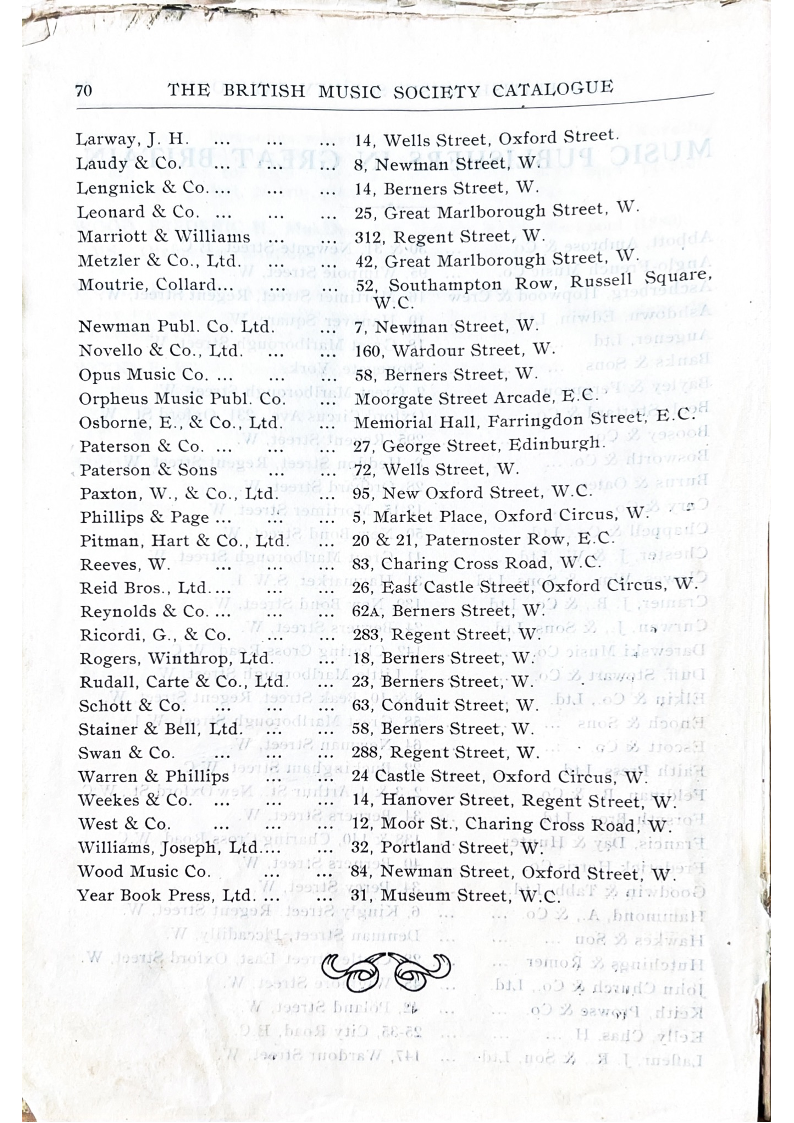 70 THE BRITISH MUSIC SOCIETY CATALOGUE
Larway, J. H. ... ... ... 14, Wells Street, Oxford Street.
Laudy & Co. ... ... ... 8, Newman Street, W.
Lengnick & Co. ... ... ... 14, Berners Street, W.
Leonard & Co. ... ... ... 25, Great Marlborough Street, W.
Marriott & Williams ... ... 312, Regent Street, W.
Metzler & Co., Ltd. ... ... 42, Great Marlborough Street, W.
Moutrie, Collard... ... ... 52, Southampton Row, Russell Square,
W.C.
Newman Publ. Co. Ltd. ... 7, Newman Street, W.
Novello & Co., Ltd. ... ... 160, Wardour Street, W.
Opus Music Co. ... ... ... 58, Berners Street, W.
Orpheus Music Publ. Co. ... Moorgate Street Arcade, E.C.
Osborne, E., & Co., Ltd. ... Memorial Hall, Farringdon Street, E.C.
Paterson & Co. ... ... ... 27, George Street, Edinburgh.
Paterson & Sons ... ... 72, Wells Street, W.
Paxton, W., & Co., Ltd. ... 95, New Oxford Street, W.C.
Phillips & Page ... ... ... 5, Market Place, Oxford Circus, W.
Pitman, Hart & Co., Ltd. ... 20 & 21, Paternoster Row, E.C.
Reeves, W. ... ... ... 83, Charing Cross Road, W.C.
Reid Bros., Ltd.... ... ... 26, East Castle Street, Oxford Circus, W.
Reynolds & Co. ... ... ... 62A, Berners Street, W.
Ricordi, G., & Co. ... ... 283, Regent Street, W.
Rogers, Winthrop, Ltd. ... 18, Berners Street, W.
Rudall, Carte & Co., Ltd. ... 23, Berners Street, W.
Schott & Co. ... ... ... 63, Conduit Street, W.
Stainer & Bell, Ltd. ... ... 58, Berners Street, W.
Swan & Co. ... ... ... 288, Regent Street, W.
Warren & Phillips ... ... 24 Castle Street, Oxford Circus, W.
Weekes & Co. ... ... ... 14, Hanover Street, Regent Street, W.
West & Co. ... ... ... 12, Moor St., Charing Cross Road, W.
Williams, Joseph, Ltd.... ... 32, Portland Street, W.
Wood Music Co. ... ... 84, Newman Street, Oxford Street, W.
Year Book Press, Ltd. ... ... 31, Museum Street, W.C.